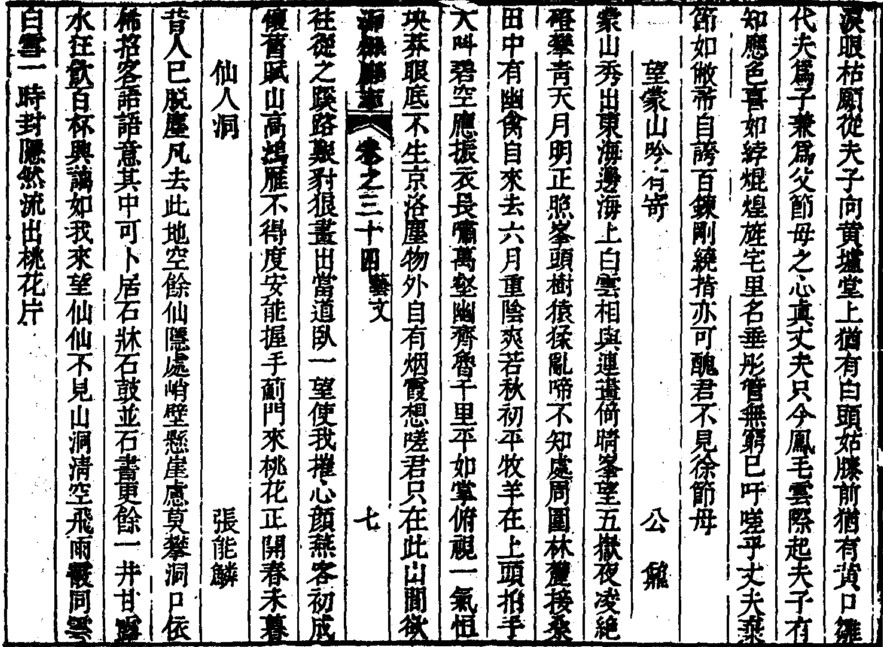 淚眼枯願從夫子向黃壚堂上猶有白頭姑膝前猶有黃口雛
代夫為子兼為父節母之心真丈夫只今鳳毛雲際起夫子有
知應色喜如綍焜煌旌宅里名垂彤管無窮已吁嗟乎丈夫秉
節如敝帚自誇百鍊剛繞指亦可醜君不見徐節母
望蒙山吟有寄 公鼐
蒙山秀出東海邊海上白雲相與連晝倚晴峯望五嶽夜凌絶
磴攀青天月明正照峯頭樹猿猱亂啼不知處周圍林麓接桑
田中有幽禽自來去六月重陰爽若秋初平牧羊在上頭拍手
大叫碧空應振衣長嘯萬壑幽齊魯千里平如掌俯視一氣恒
坱莽眼底不生京洛塵物外自有烟霞想嗟君只在此山間欲
卷之三十四 藝文 七
往從之蹊路艱豺狼晝出當道臥一望使我摧心顏燕客初成
懷舊賦山高鴻雁不得度安能握手薊門來桃花正開春未暮
仙人洞 張能鱗
昔人已脫塵凡去此地空餘仙隱處峭壁懸崖慮莫攀洞口依
稀招客語語意其中可卜居石牀石鼓並石書更餘一井甘露
水狂飲百杯興謫如我來望仙仙不見山洞清空飛雨霰同雲
白雲一時封隱然流出桃花片